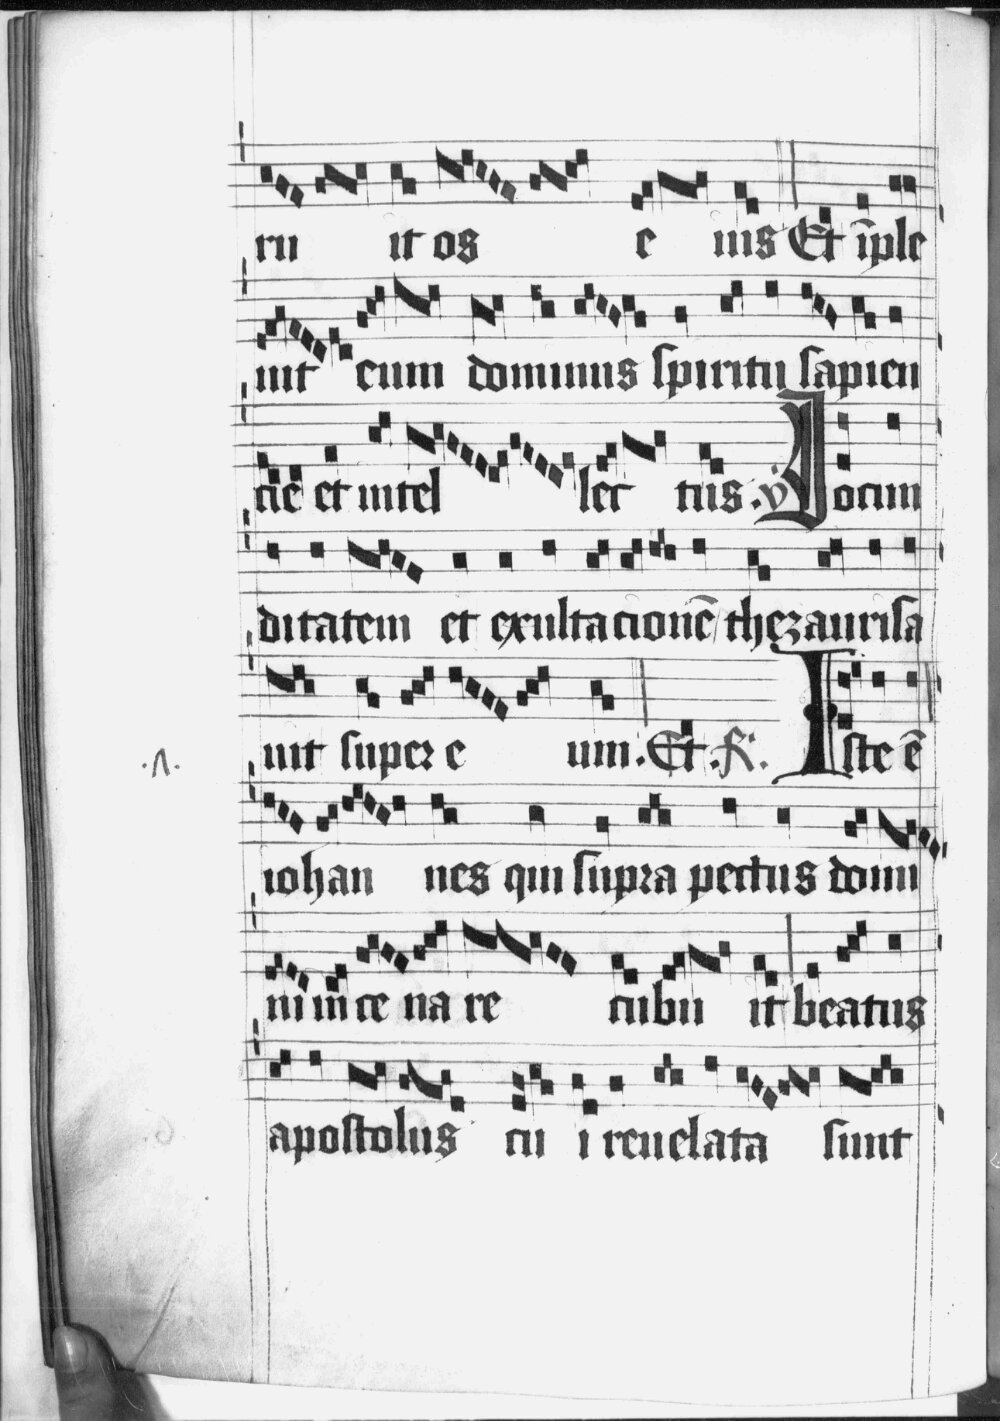 ru it os e ius Et īple
uit eum dominus spiritu sapien
cie et intel lec tus . v̄ Jocun
ditatem et exultacionē thezaurisa
uit super e um . Et . R̄ . Iste ē
.Λ.
iohan nes qui supra pectus domi
ni in ce na re cubu it beatus
apostolus cu i reuelata sunt